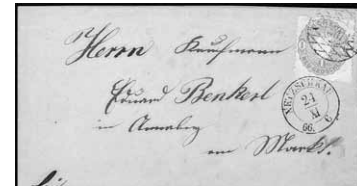 Herrn Kaufmann
Eduard Benkert
in Annaberg
am Markt.
NETZSCHKAU
21
XI
66.